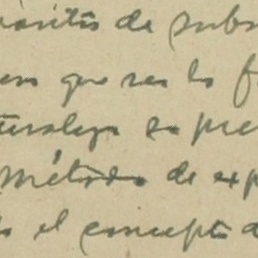 de subs
que sea la f
turaleza su pre
Método de exp
el concepto d